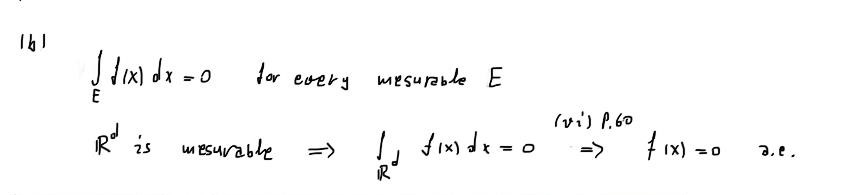 (b)
∫_E f(x) dx = 0 for every mesurable E
ℝ^d is mesurable ⇒ ∫_{ℝ^d} f(x) dx = 0 ⇒ (vi) P.60 f(x) = 0 a.e.